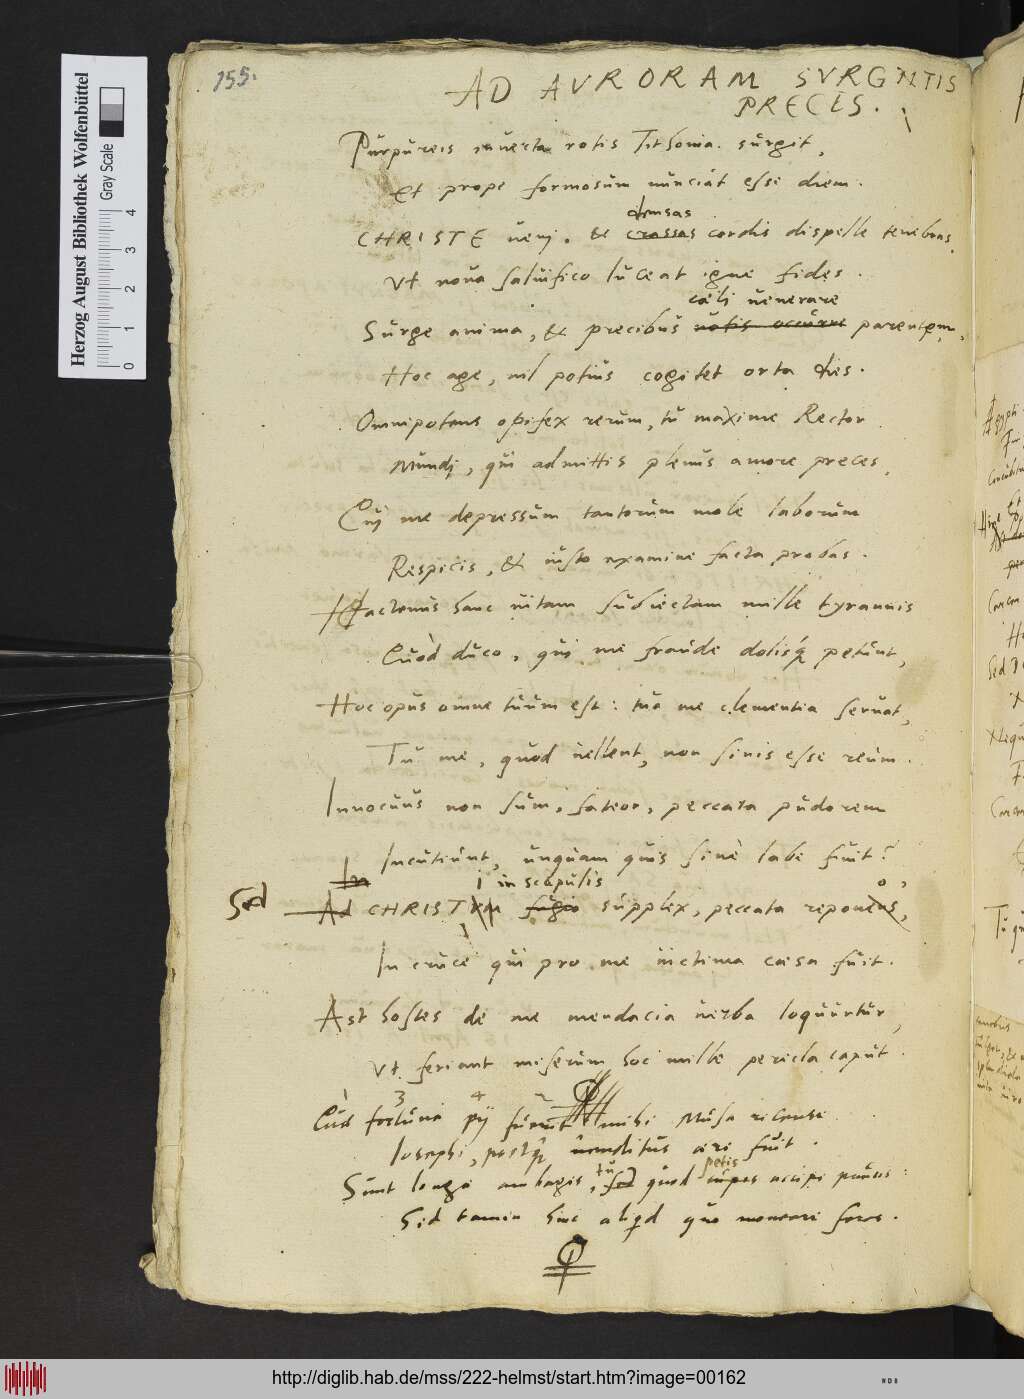 155.
AD AVRORAM SVRGNTIS
PRECES.
Purpureis inuecta rotis Tithonia surgit,
Et prope formosum nunciat esse diem.
densas
CHRISTE ueni. & crassas cordis dispelle tenebras,
Vt noua saluifico luceat igne fides.
caeli uenerare
Surge anima, & precibus uotis occurre parentem,
Hoc age, nil potius cogitet orta dies.
Omnipotens opifex rerum, tu maxime Rector
Mundi, qui admittis plenus amore preces,
Qui me depressum tantorum mole laborum
Respicis, & iusto examine facta probas.
Hactenus hanc uitam subiectam mille tyrannis
Quòd duco, qui me fraude dolisq petunt,
Hoc opus omne tuum est: tua me clementia seruat,
Tu me, quod uellent, non sinis esse reum.
Innocuus non sum, fateor, peccata pudorem
Incutiunt, unquam quis sinè labe fuit?
In
i in scapulis
o,
Sed Ad CHRISTVM fugio supplex, peccata reponens,
In cruce qui pro me uictima caesa fuit.
Ast hostes de me mendacia uerba loquuntur,
Vt feriant miserum hoc mille pericla caput.
3 4 2
fortuna pij mihi Musa recense
Iosephi, postq uenditus aere fuit.
tu petis
Sunt longae ambages, sed quod cupis accipe paucis:
Sed tamen hinc aliqd quo moneare feres.
Herzog August Bibliothek Wolfenbüttel
Gray Scale
0 1 2 3 4
http://diglib.hab.de/mss/222-helmst/start.htm?image=00162